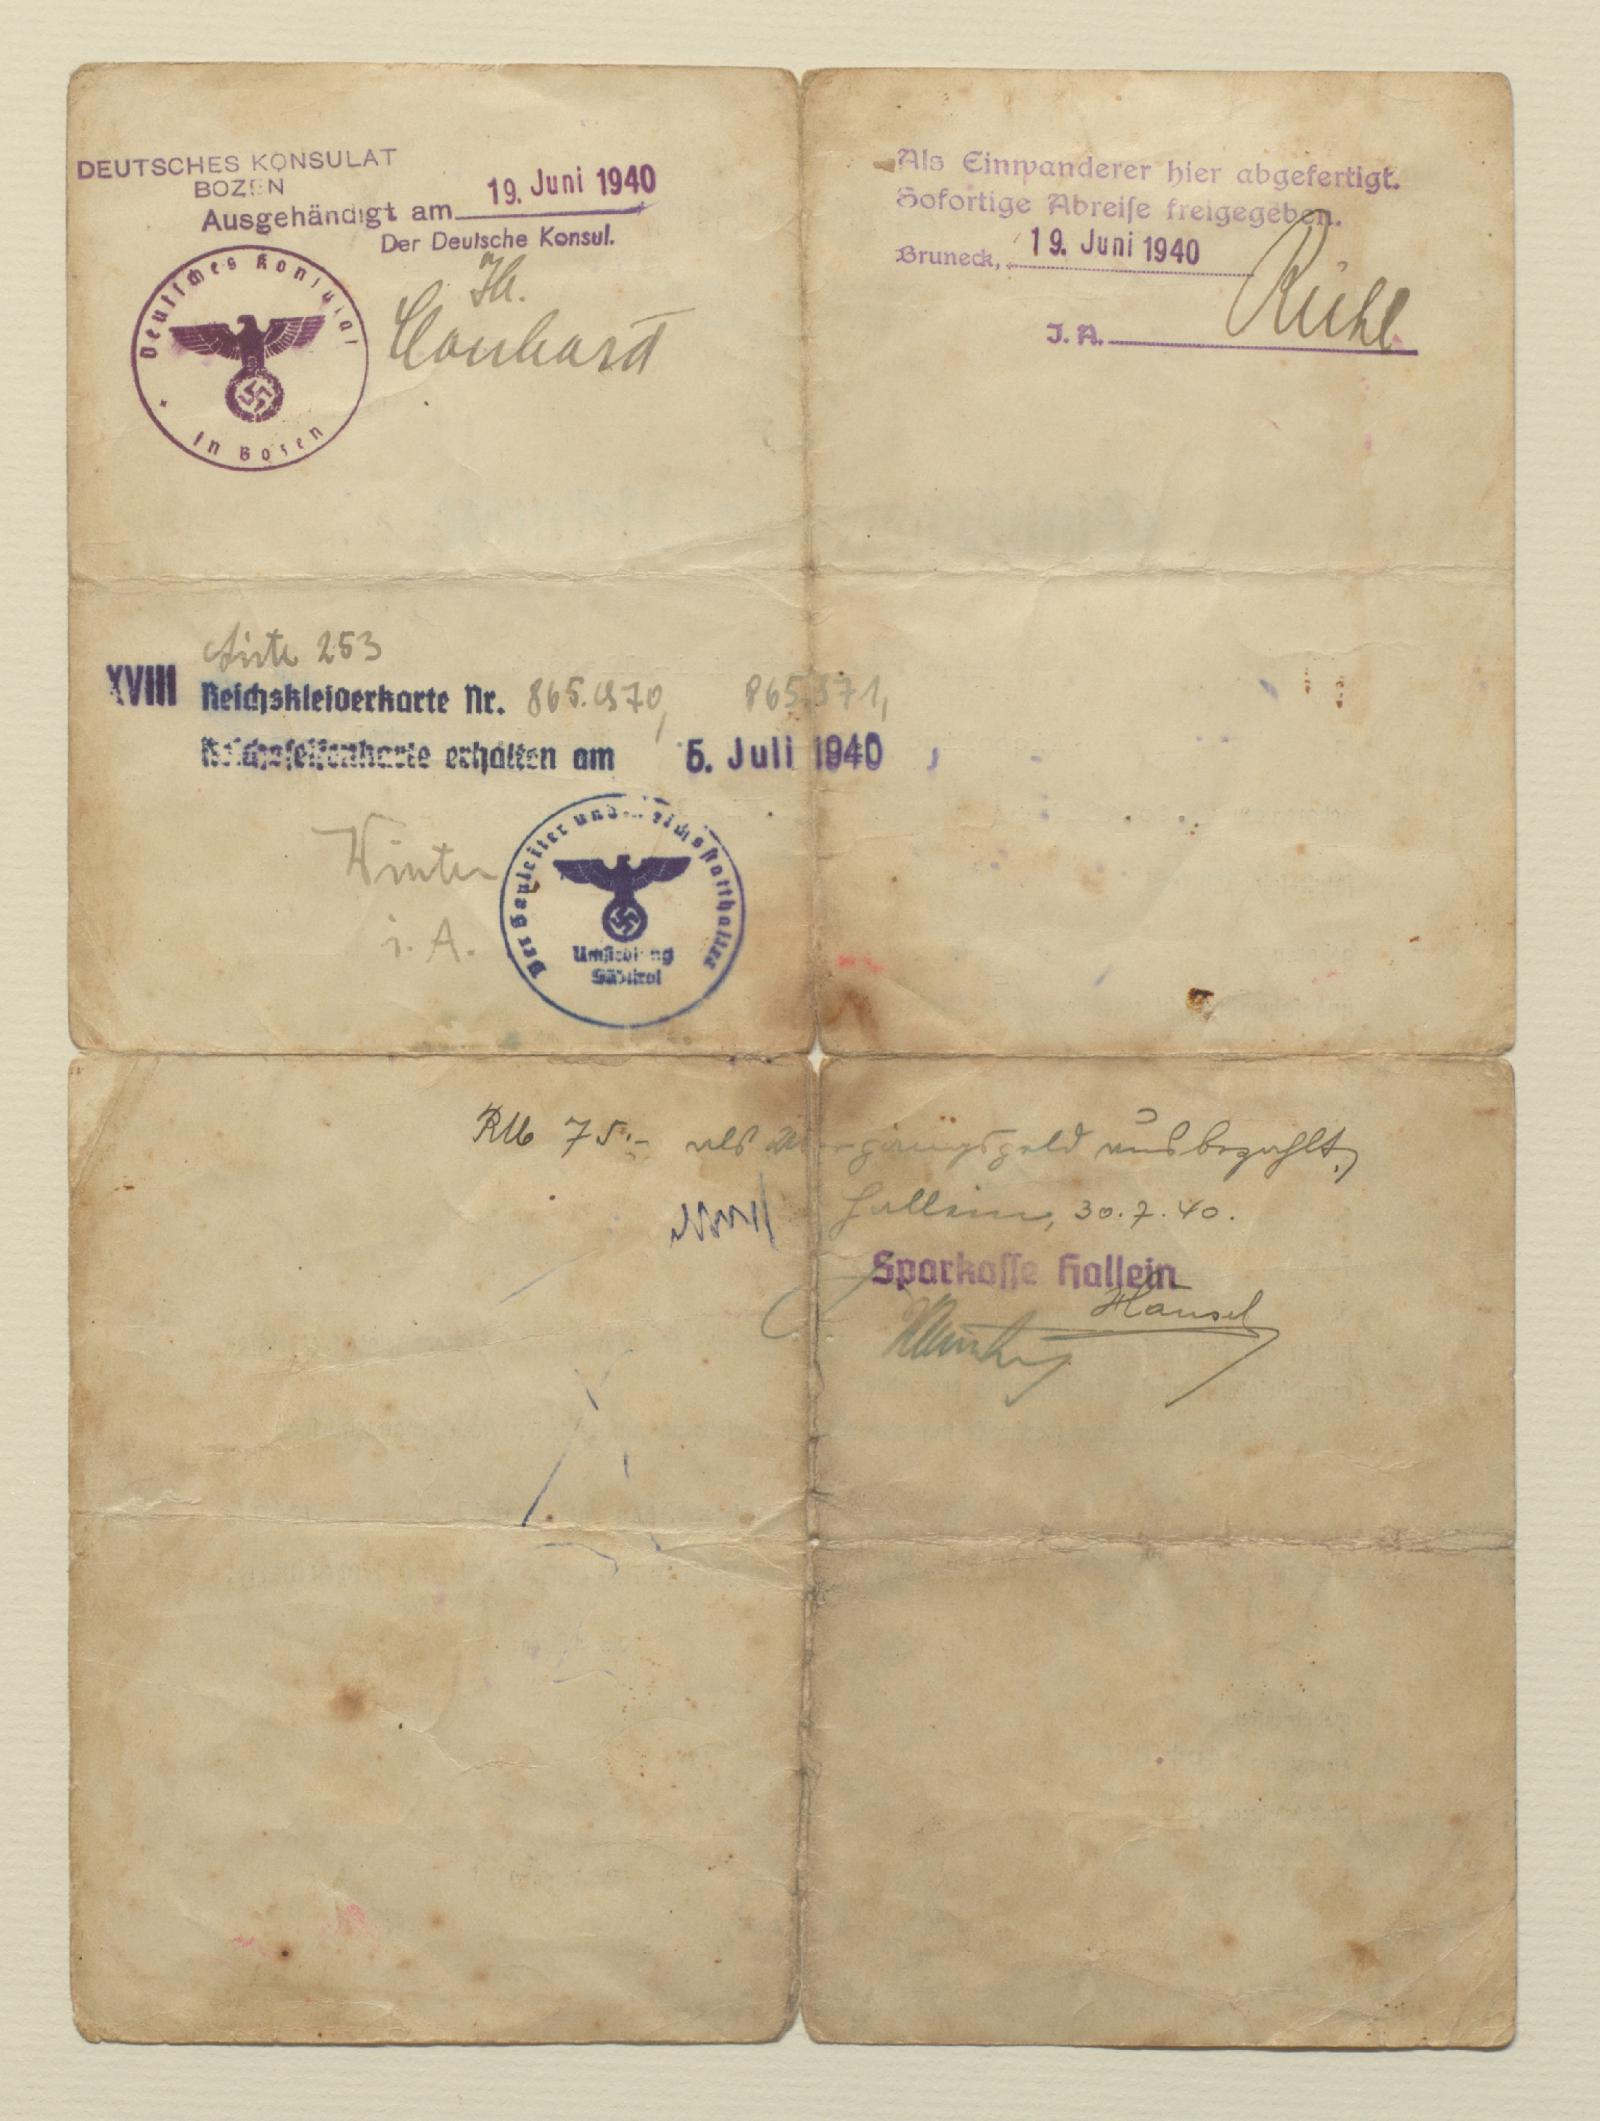 DEUTSCHES KONSULAT
BOZEN
Ausgehändigt am 19. Juni 1940
Der Deutsche Konsul.
Deutsches Konsulat
in Bozen
Als Einwanderer hier abgefertigt.
Sofortige Abreise freigegeben.
Bruneck, 19. Juni 1940
J. A. Rühl
Liste 253
XVIII Reichskleiderkarte Nr. 865.970, 865.971,
Reichsseifenkarte erhalten am 5. Juli 1940
Winter
i. A.
Der Gauleiter und Reichsstatthalter
Umsiedlung
Südtirol
RM 75.- als Übergangsgeld ausbezahlt,
Hallein, 30.7.40.
Sparkasse Hallein
Hänsel